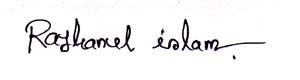 Rayhanul islam